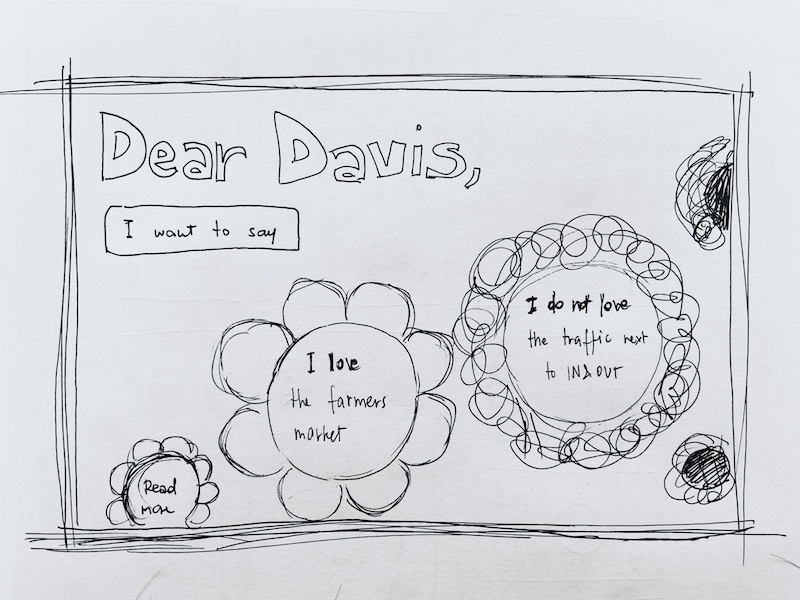 Dear Davis,
I want to say
I love
the farmers
market
I do not love
the traffic next
to IN&OUT
Read
more